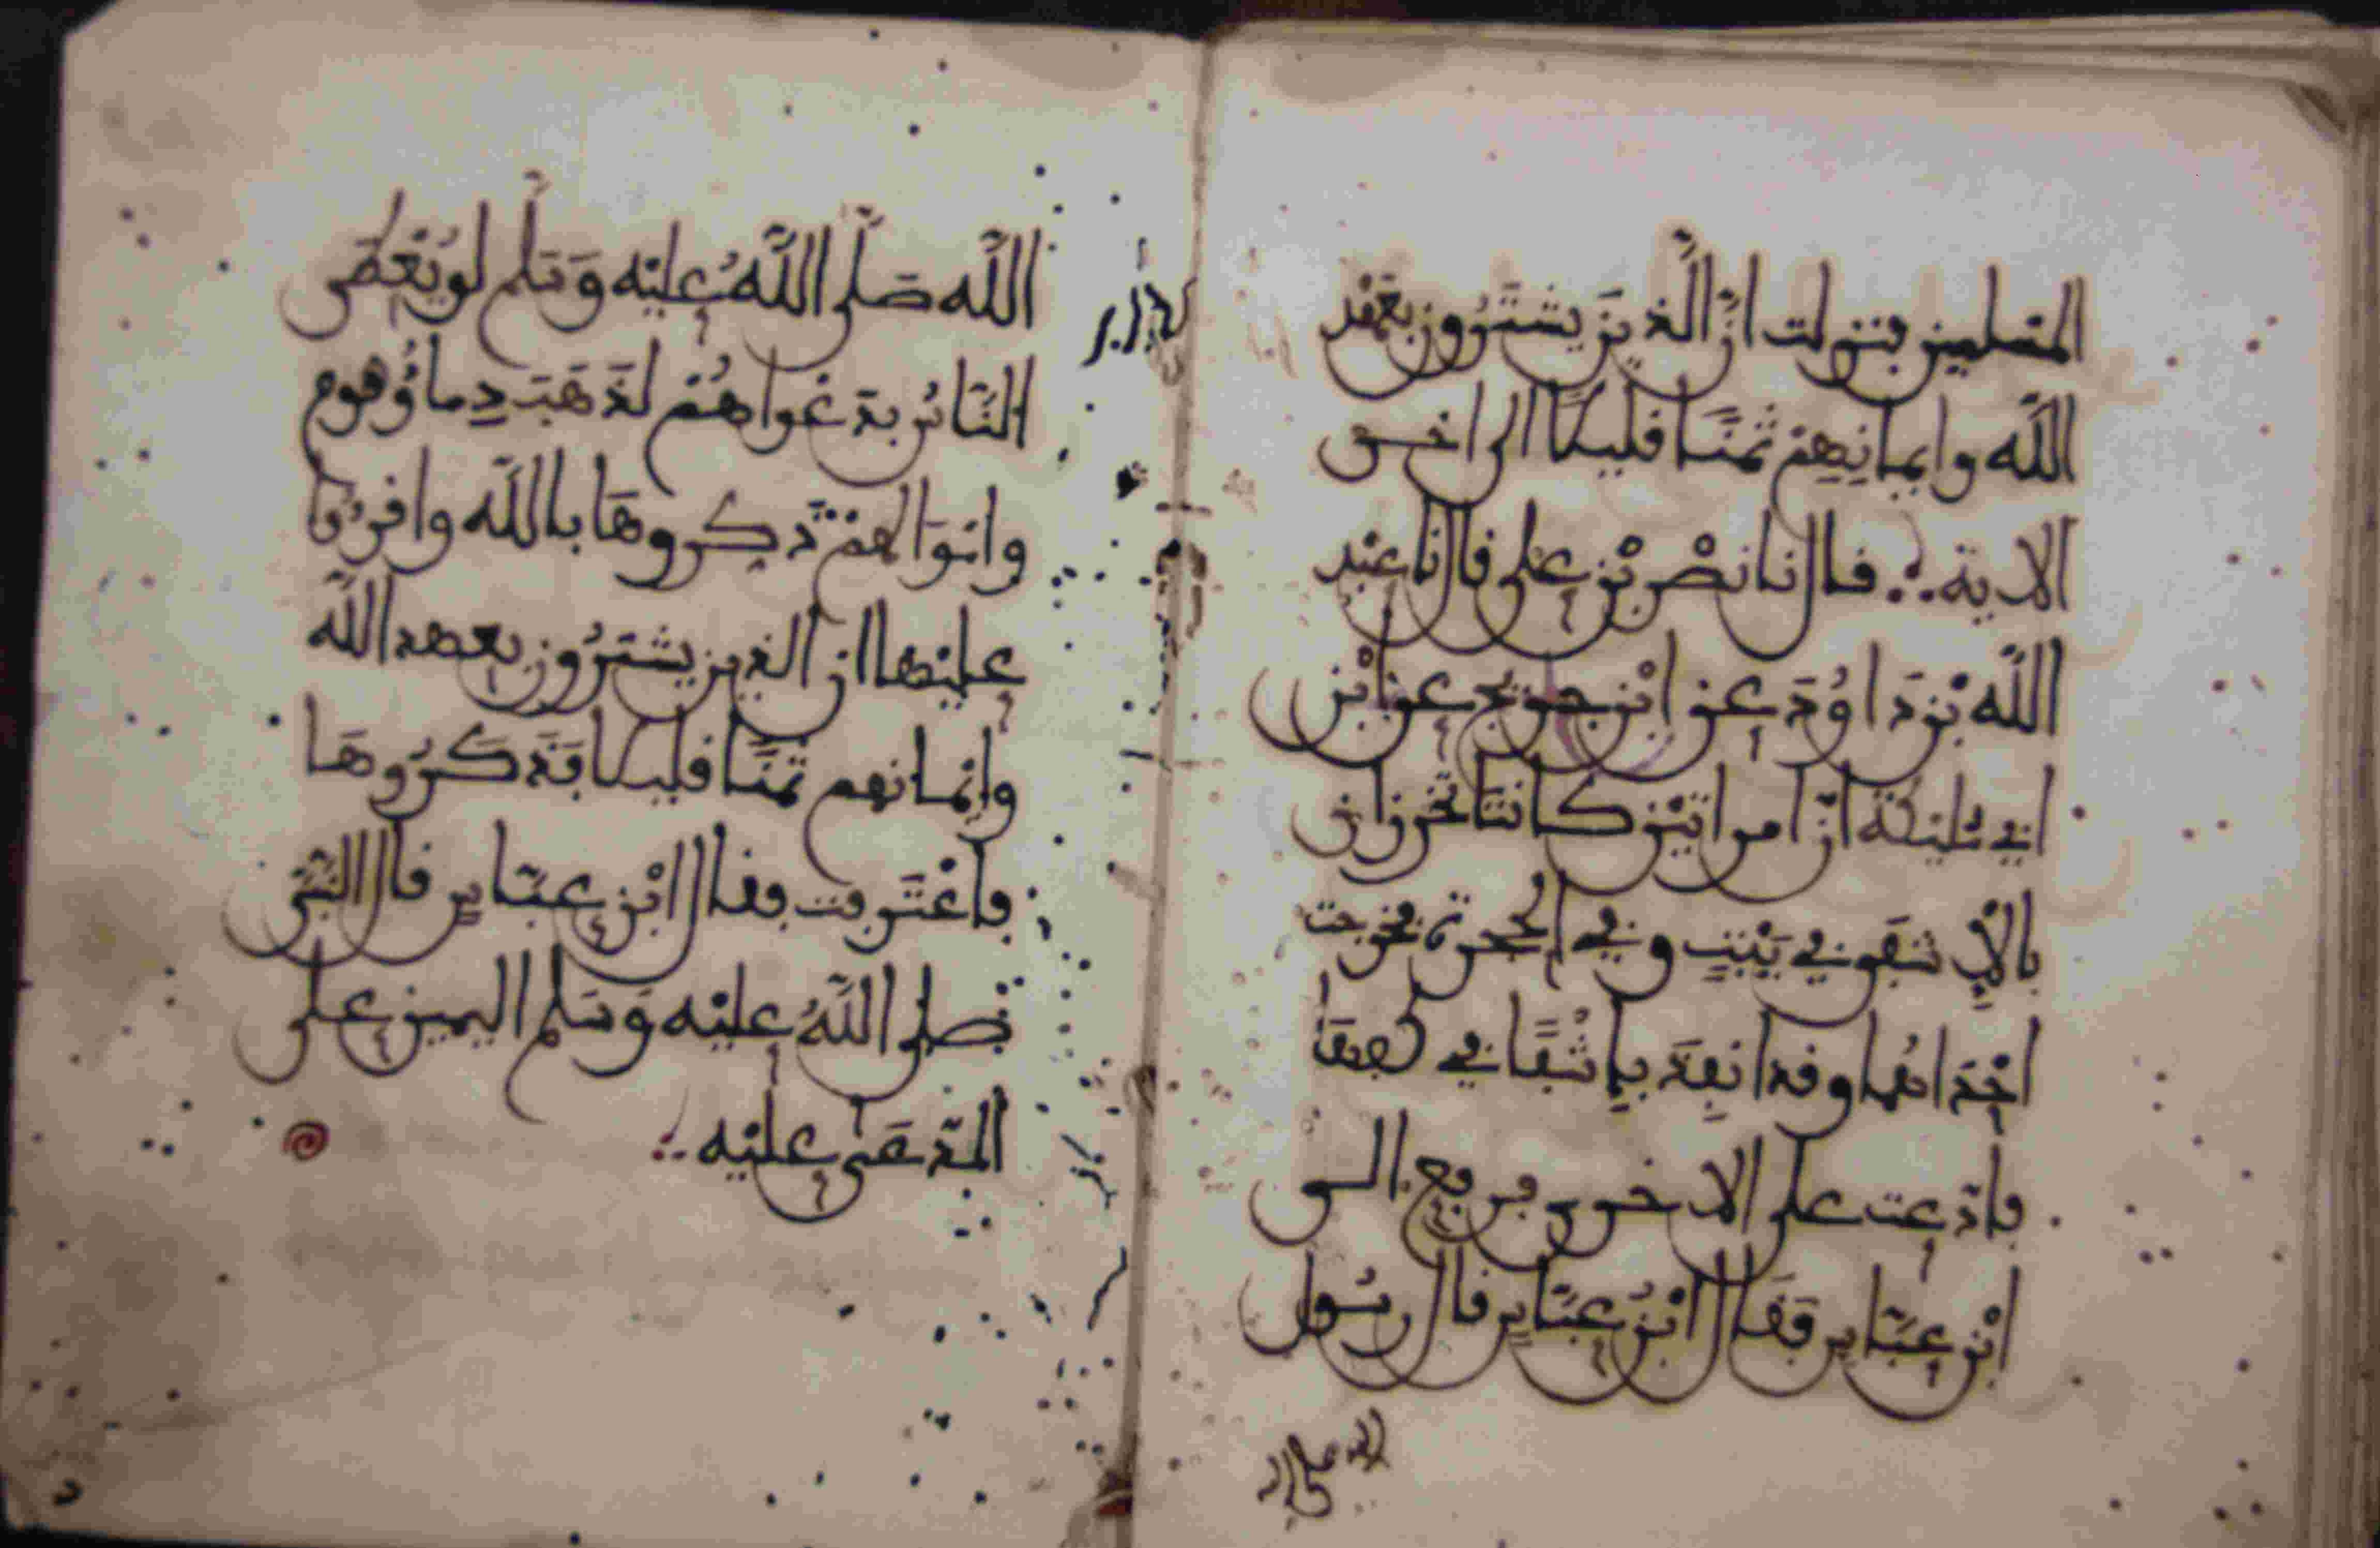 المسلمين فنزلت انّ الّذين يشترون بعهد
اللّه وايمانهم ثمنًا قليلا الى اخر
الاية قال نا نصر بن علي قال نا عبد
اللّه بن داوُد عن ابن جريج عن ابن
ابي مليكة انّ امراتين كانتا تخرزان
في بيت وفي الحجرة فخرجت
احداهما وقد انفذ باشفًا في كفها
فادّعت على الاخرى فرفع الى
ابن عبّاس فقال ابن عبّاس قال رسول
اللّه صلّى اللّه عليه وسلم لو يعطى
النّاس بدعواهم لذهب دماؤ قوم
واموالهم ذكروها باللّه واقرءوا
عليها ان الذين يشترون بعهد اللّه
وايمانهم ثمنًا قليلا فذكروها
فاعترفت فقال ابن عبّاس قال النّبي
صلى اللّه عليه وسلم اليمين على
المدّعى عليه